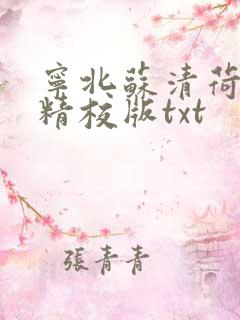 寧北蘇清荷
精校版txt
張青青